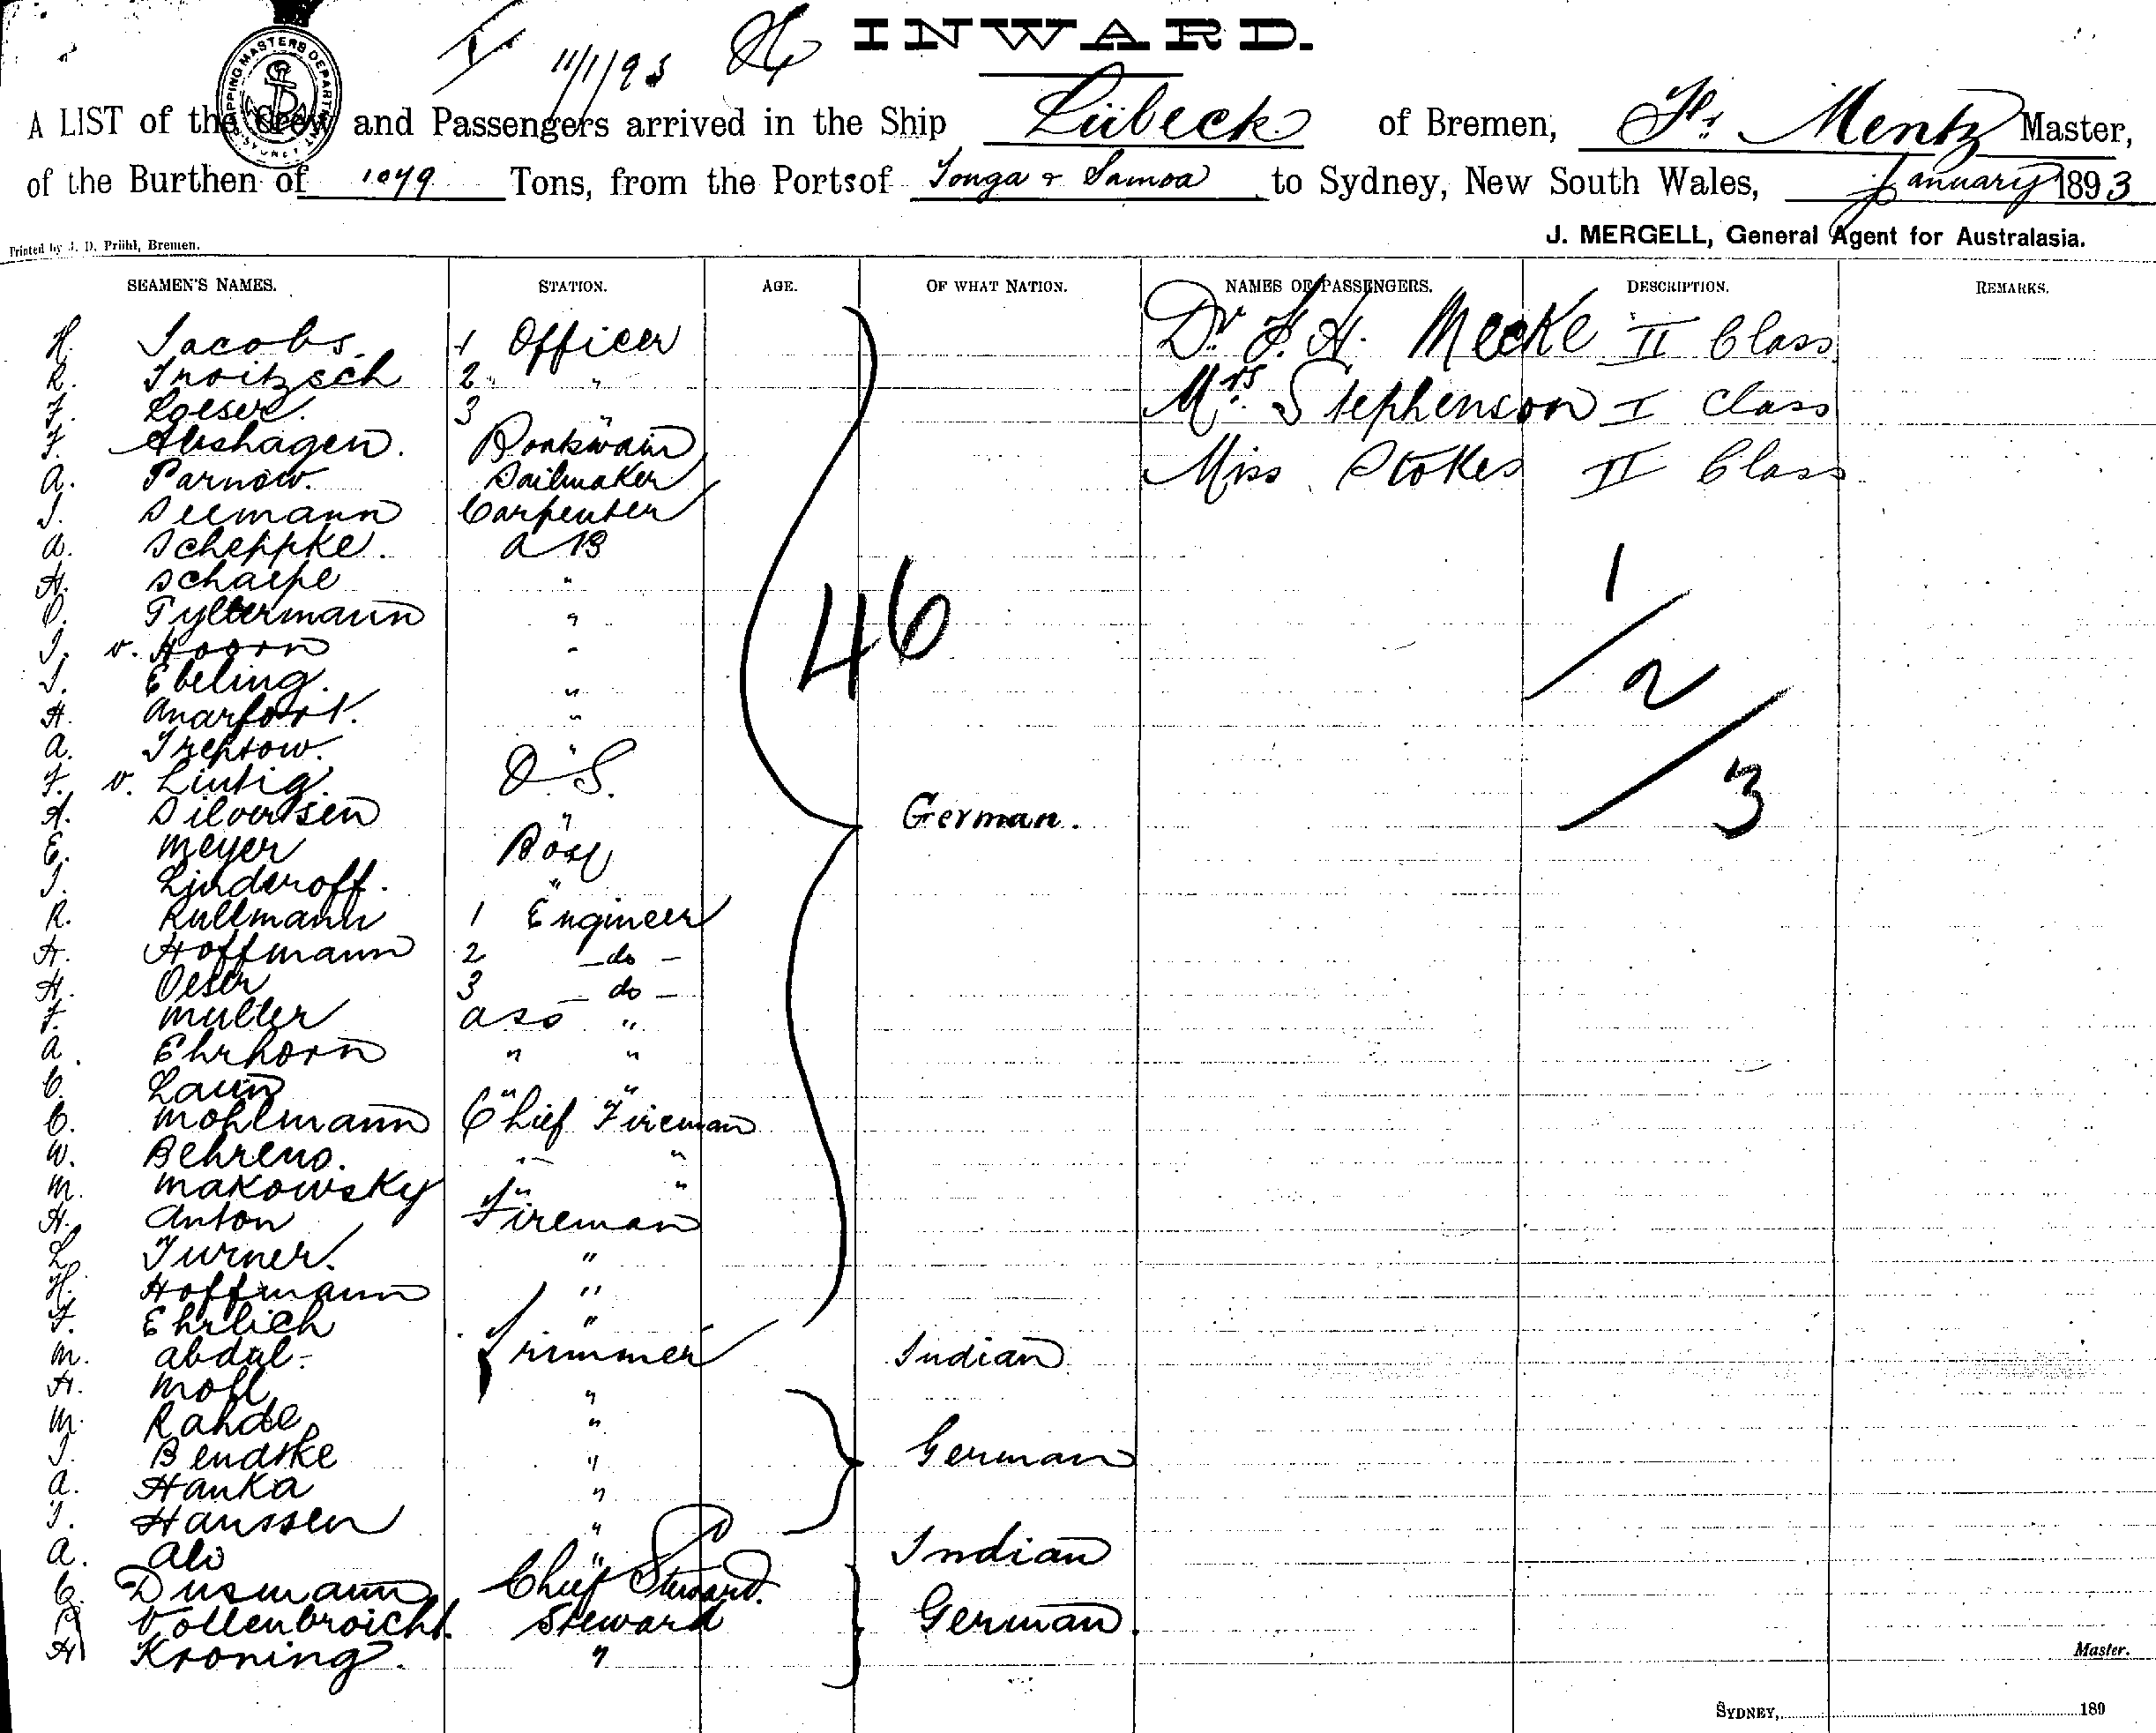 INWARD.
11/1/93
SHIPPING MASTERS DEPARTMENT SYDNEY
A LIST of the Crew and Passengers arrived in the Ship Lübeck of Bremen, Mentz Master,
of the Burthen of 1049 Tons, from the Ports of Tonga & Samoa to Sydney, New South Wales, January 1893
Printed by J. D. Prühl, Bremen.
J. MERGELL, General Agent for Australasia.
SEAMEN'S NAMES. STATION. AGE. OF WHAT NATION. NAMES OF PASSENGERS. DESCRIPTION. REMARKS.
H. Jacobs. 1 Officer Dr. F. H. Mecke II Class
R. Troitzsch 2 " " Mrs. Stephenson I Class
F. Loeser. 3 "
F. Abshagen. Boatswain Miss Stokes II Class
A. Parnow. Sailmaker
J. Seemann Carpenter
A. Scheppke. A B
H. Schaepe "
O. Fyltermann "
J. v. Hoorn "
J. Ebeling. "
H. Anarfort. "
A. Treptow. "
F. v. Lintig. O.S.
A. Silvertsen "
E. Meyer Boy
J. Linderoff. "
R. Rullmann 1 Engineer
H. Hoffmann 2 - do -
H. Oeser 3 - do -
F. Muller ass "
A. Ehrhorn " "
C. Laun " "
C. Mohlmann Chief Fireman
W. Behrens. " "
M. Makowsky " "
H. Anton Fireman
L. Turner. "
H. Hoffmann "
F. Ehrlich "
M. Abdul. Trimmer Indian
H. Moll "
M. Rahde "
J. Bendske " German
A. Hanka "
J. Hanssen "
A. Ali " Indian
C. Dusmann Chief Steward.
Vollenbroicht. Steward German.
H Kroning. "
46
German.
1/2/3
Master.
SYDNEY, 189